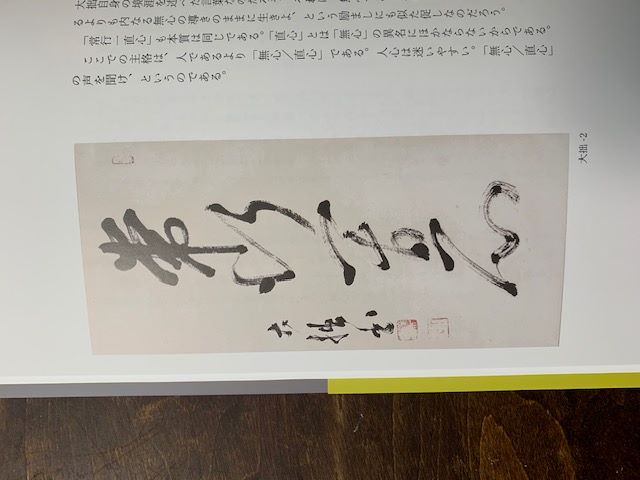 大拙自身の境涯を述べた言葉
るよりも内なる無心の導きのままに生きよ、という励ましにも似た促しなのだろう。
「常行一直心」も本質は同じである。「直心」とは「無心」の異名にほかならないからである。
ここでの主格は、人であるより「無心／直心」である。人心は迷いやすい。「無心／直心」
の声を聞け、というのである。
常行一直心
大拙
大拙-2